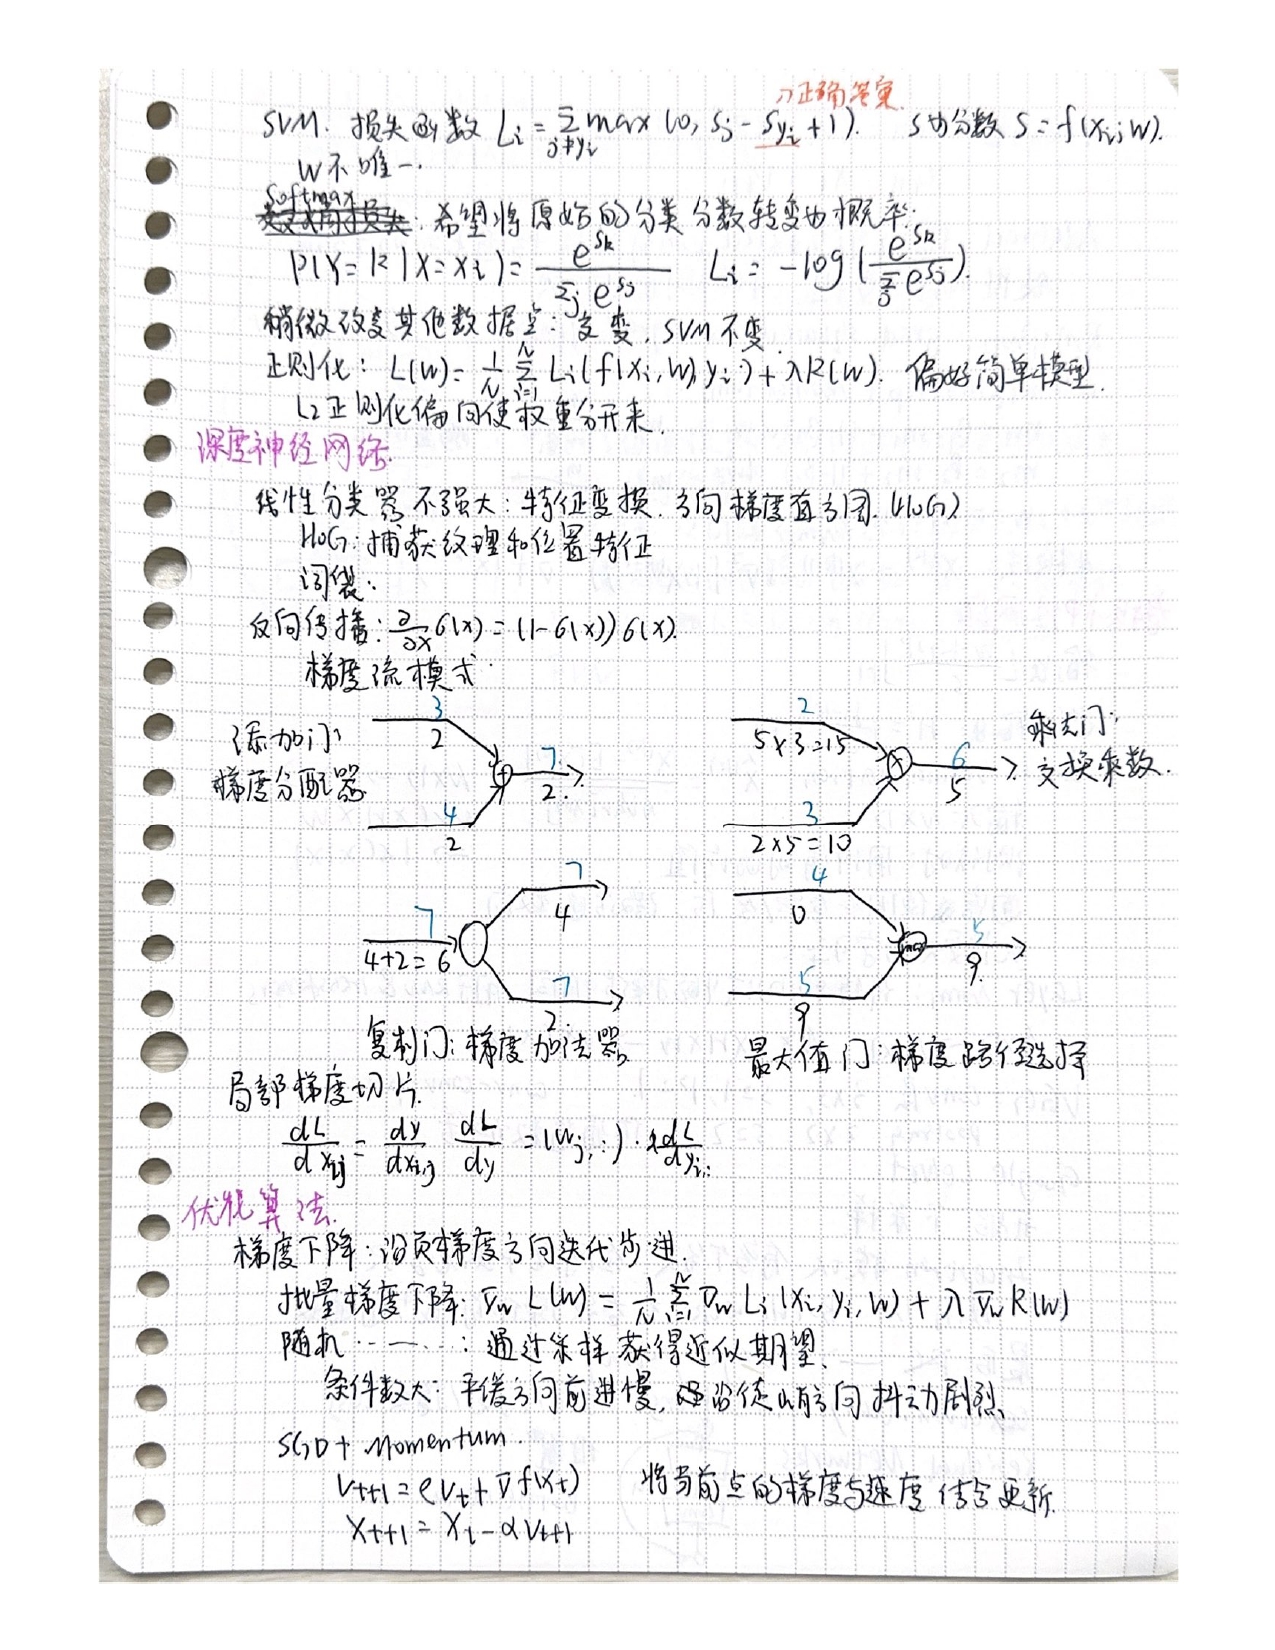 →正确答案
SVM. 损失函数 Li = Σ_{j≠yi} max(0, Sj - Syi + 1). S为分数 S = f(xi; W).
W不唯一.
Softmax: 希望将原始的分类分数转变为概率.
P(Y=k|X=xi) = e^{Sk} / Σj e^{Sj} Li = -log(e^{Sk} / Σj e^{Sj}).
稍微改变其他数据点: 交变, SVM不变.
正则化: L(W) = 1/N Σ_{i=1}^{N} Li(f(xi, W), yi) + λR(W). 偏好简单模型.
L2正则化偏向使权重分开来.
深度神经网络.
线性分类器不强大: 特征变换. 方向梯度直方图. (HoG)
HoG: 捕获纹理和位置特征
词袋:
反向传播: ∂/∂x σ(x) = (1-σ(x))σ(x).
梯度流模式
添加门:
梯度分配器
3
2
4
2
+
7
2.
2
5×3=15
3
2×5=10
×
6
5
乘法门:
交换乘数.
7
4+2=6
7
4
7
2.
复制门: 梯度加法器
4
0
5
9
max
5
9.
最大值门: 梯度路径选择
局部梯度切片.
dL/dxij = dy/dxi,j dL/dy = (wj,:) · dL/dyi,:
优化算法.
梯度下降: 沿负梯度方向迭代步进.
批量梯度下降: ∇w L(W) = 1/N Σ_{i=1}^{N} ∇w Li(xi, yi, W) + λ∇w R(W)
随机 ……: 通过采样获得近似期望.
条件数大: 平缓方向前进慢, 沿陡峭方向抖动剧烈.
SGD + Momentum.
Vt+1 = ρVt + ∇f(xt) 将当前点的梯度与速度结合更新.
Xt+1 = Xi - αVt+1